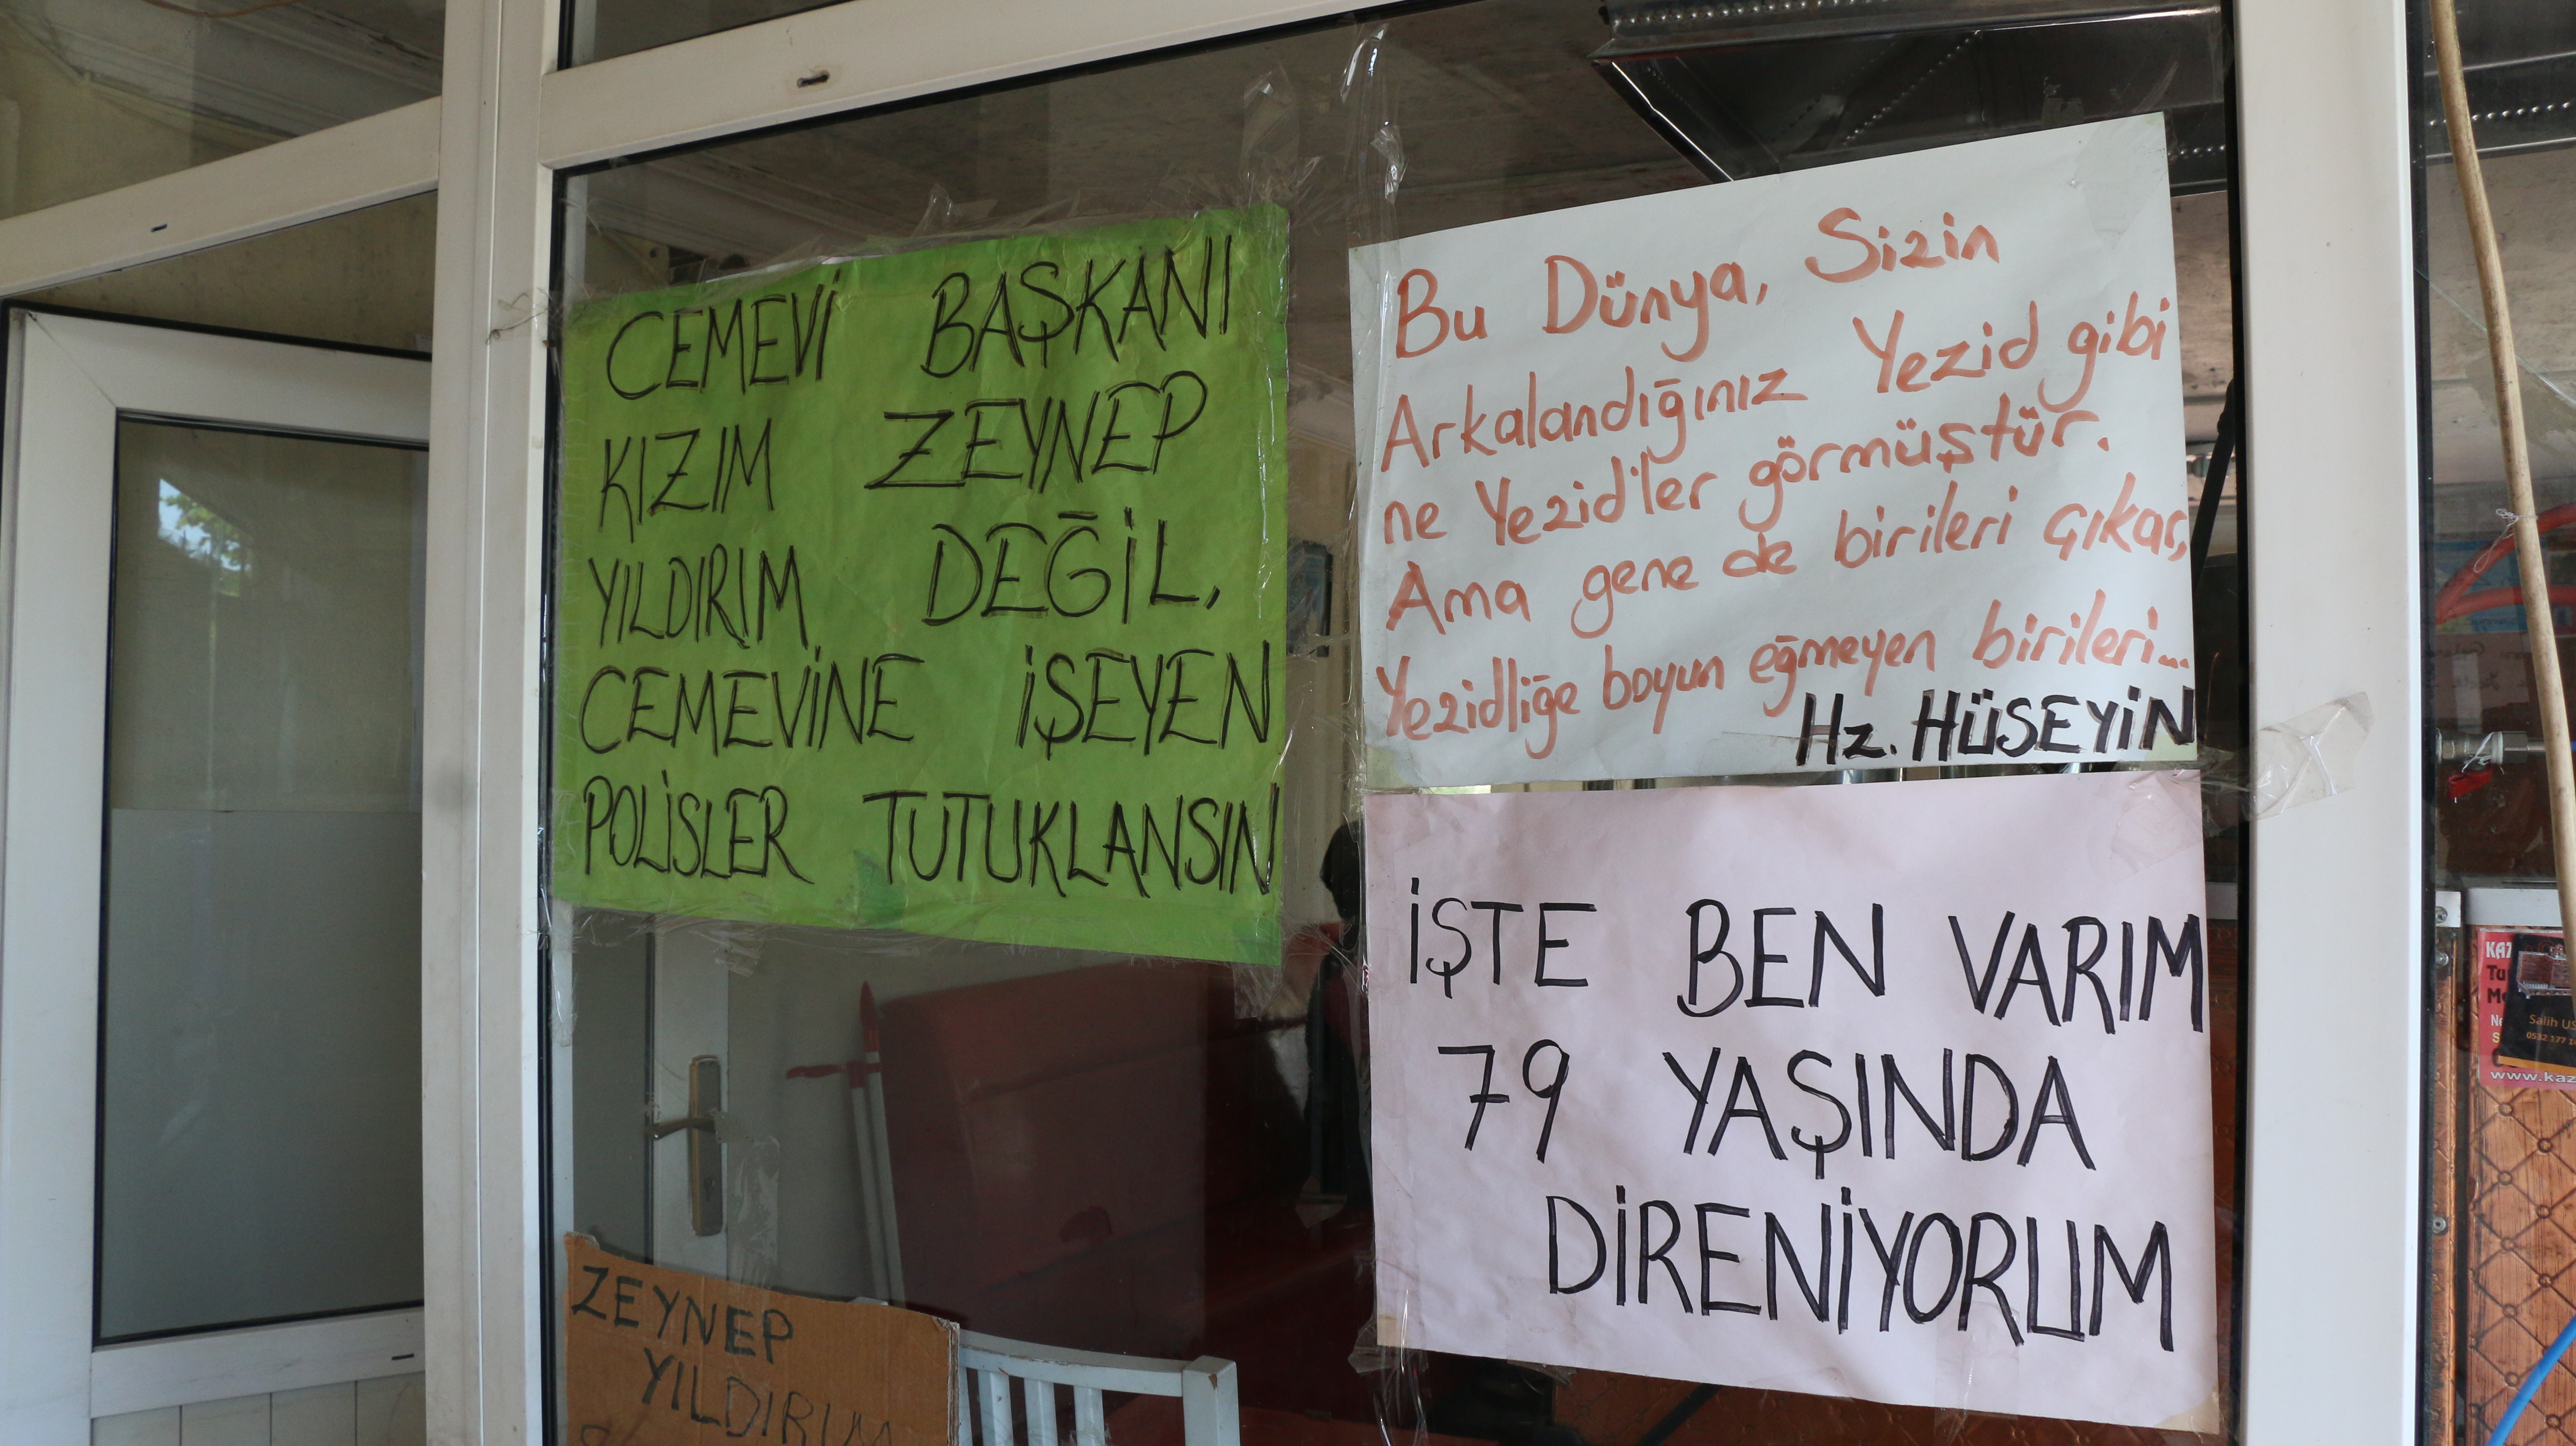 CEMEVİ BAŞKANI
KIZIM ZEYNEP
YILDIRIM DEĞİL,
CEMEVİNE İŞEYEN
POLİSLER TUTUKLANSIN
Bu Dünya, Sizin
Arkalandığınız Yezid gibi
ne Yezid'ler görmüştür.
Ama gene de birileri çıkar,
Yezidliğe boyun eğmeyen birileri...
Hz. HÜSEYİN
İŞTE BEN VARIM
79 YAŞINDA
DİRENİYORUM
ZEYNEP
YILDIRIM
Salih
www.kaz